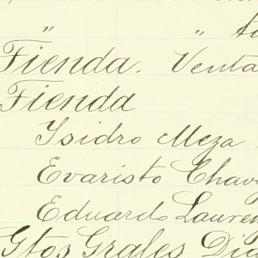 " "
Fienda. Venta
Fienda
Isidro Meza
Evaristo Chav
Eduardo Lauren
Gtos Grales Dia